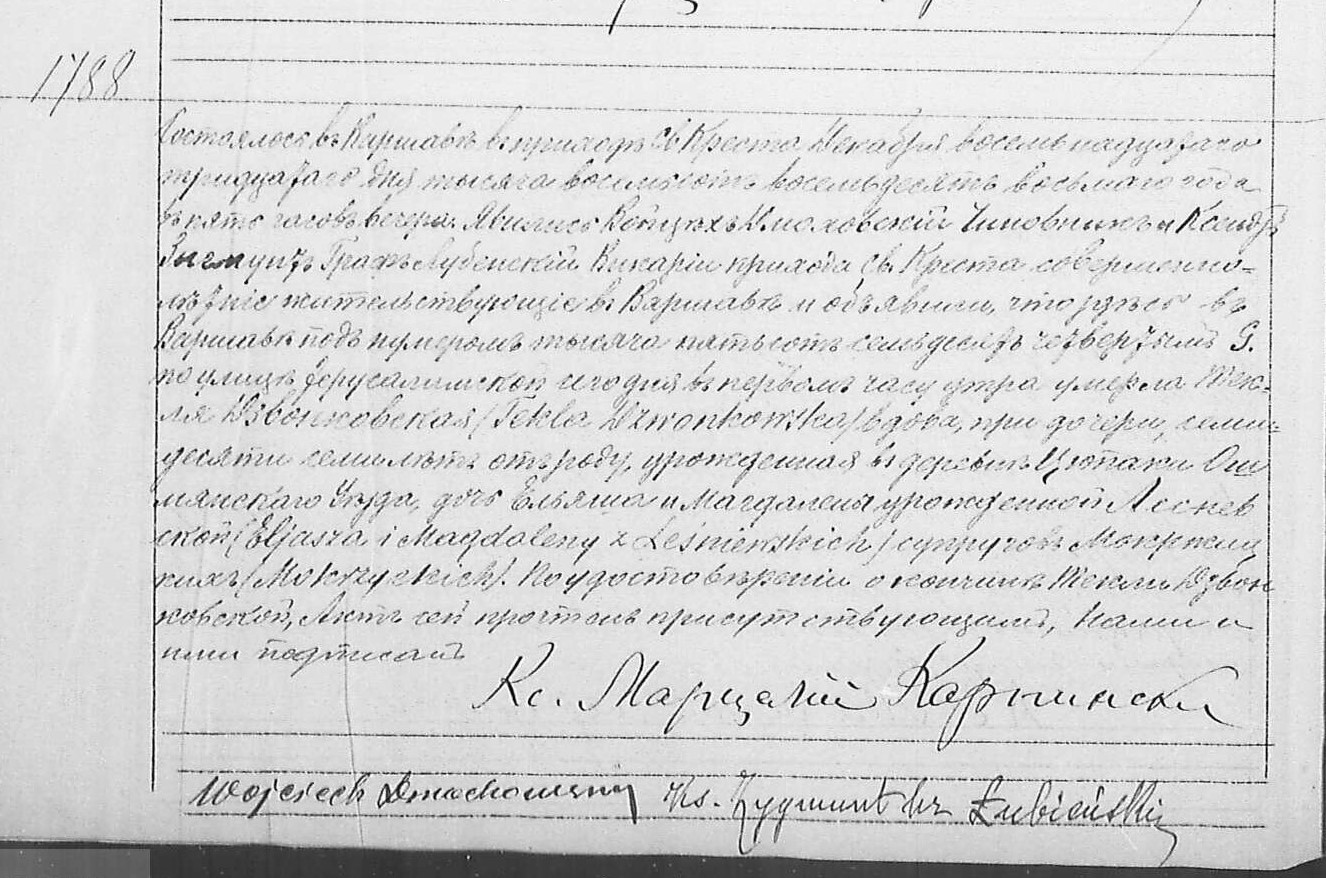 1788
Состоялось въ Варшавѣ въ приходѣ Св Креста Декабря восемьнадцатаго
тридцатаго дня тысяча восемьсотъ восемьдесятъ восьмаго года
въ пять часовъ вечера. Явились Войцѣхъ Дмоховскій Чиновникъ и Ксендзъ
Зыгмунтъ Графъ Лубенскій Викарій прихода Св. Креста совершенно-
лѣтніе жительствующіе въ Варшавѣ и объявили, что здѣсь въ
Варшавѣ подъ нумеромъ тысяча пятьсотъ семьдесятъ четвертымъ G.
по улицѣ Іерусалимской сего дня въ первомъ часу утра умерла Тек-
ля Дзвонковская /Tekla Dzwonkowska/ вдова, при дочери, семи-
десяти семи лѣтъ отъ роду, урожденная въ деревнѣ Ош
мянскаго Уѣзда, дочь Ельяша и Магдалены урожденной Леснев
ской /Eljasza i Magdaleny z Leśniewskich/ супруговъ Мокржиц
кихъ /Mokrzyckich/. По удостовѣреніи о кончинѣ Текли Дзвон
ковской, Актъ сей прочтенъ присутствующимъ, Нами и
ими подписанъ
Кс. Марцелій Карпински
Wojciech Dmochowski Ks. Zygmunt hr Łubieński